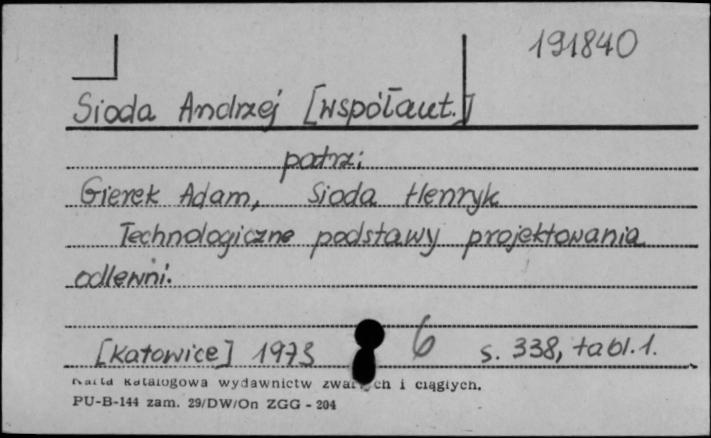 191840
Sioda Andrzej [współaut.]
patrz:
Gierek Adam, Sioda Henryk
Technologiczne podstawy projektowania
odlewni.
[Katowice] 1973 6 s. 338, tabl. 1.
Karta katalogowa wydawnictw zwartych i ciągłych.
PU-B-144 zam. 29/DW/On ZGG - 204